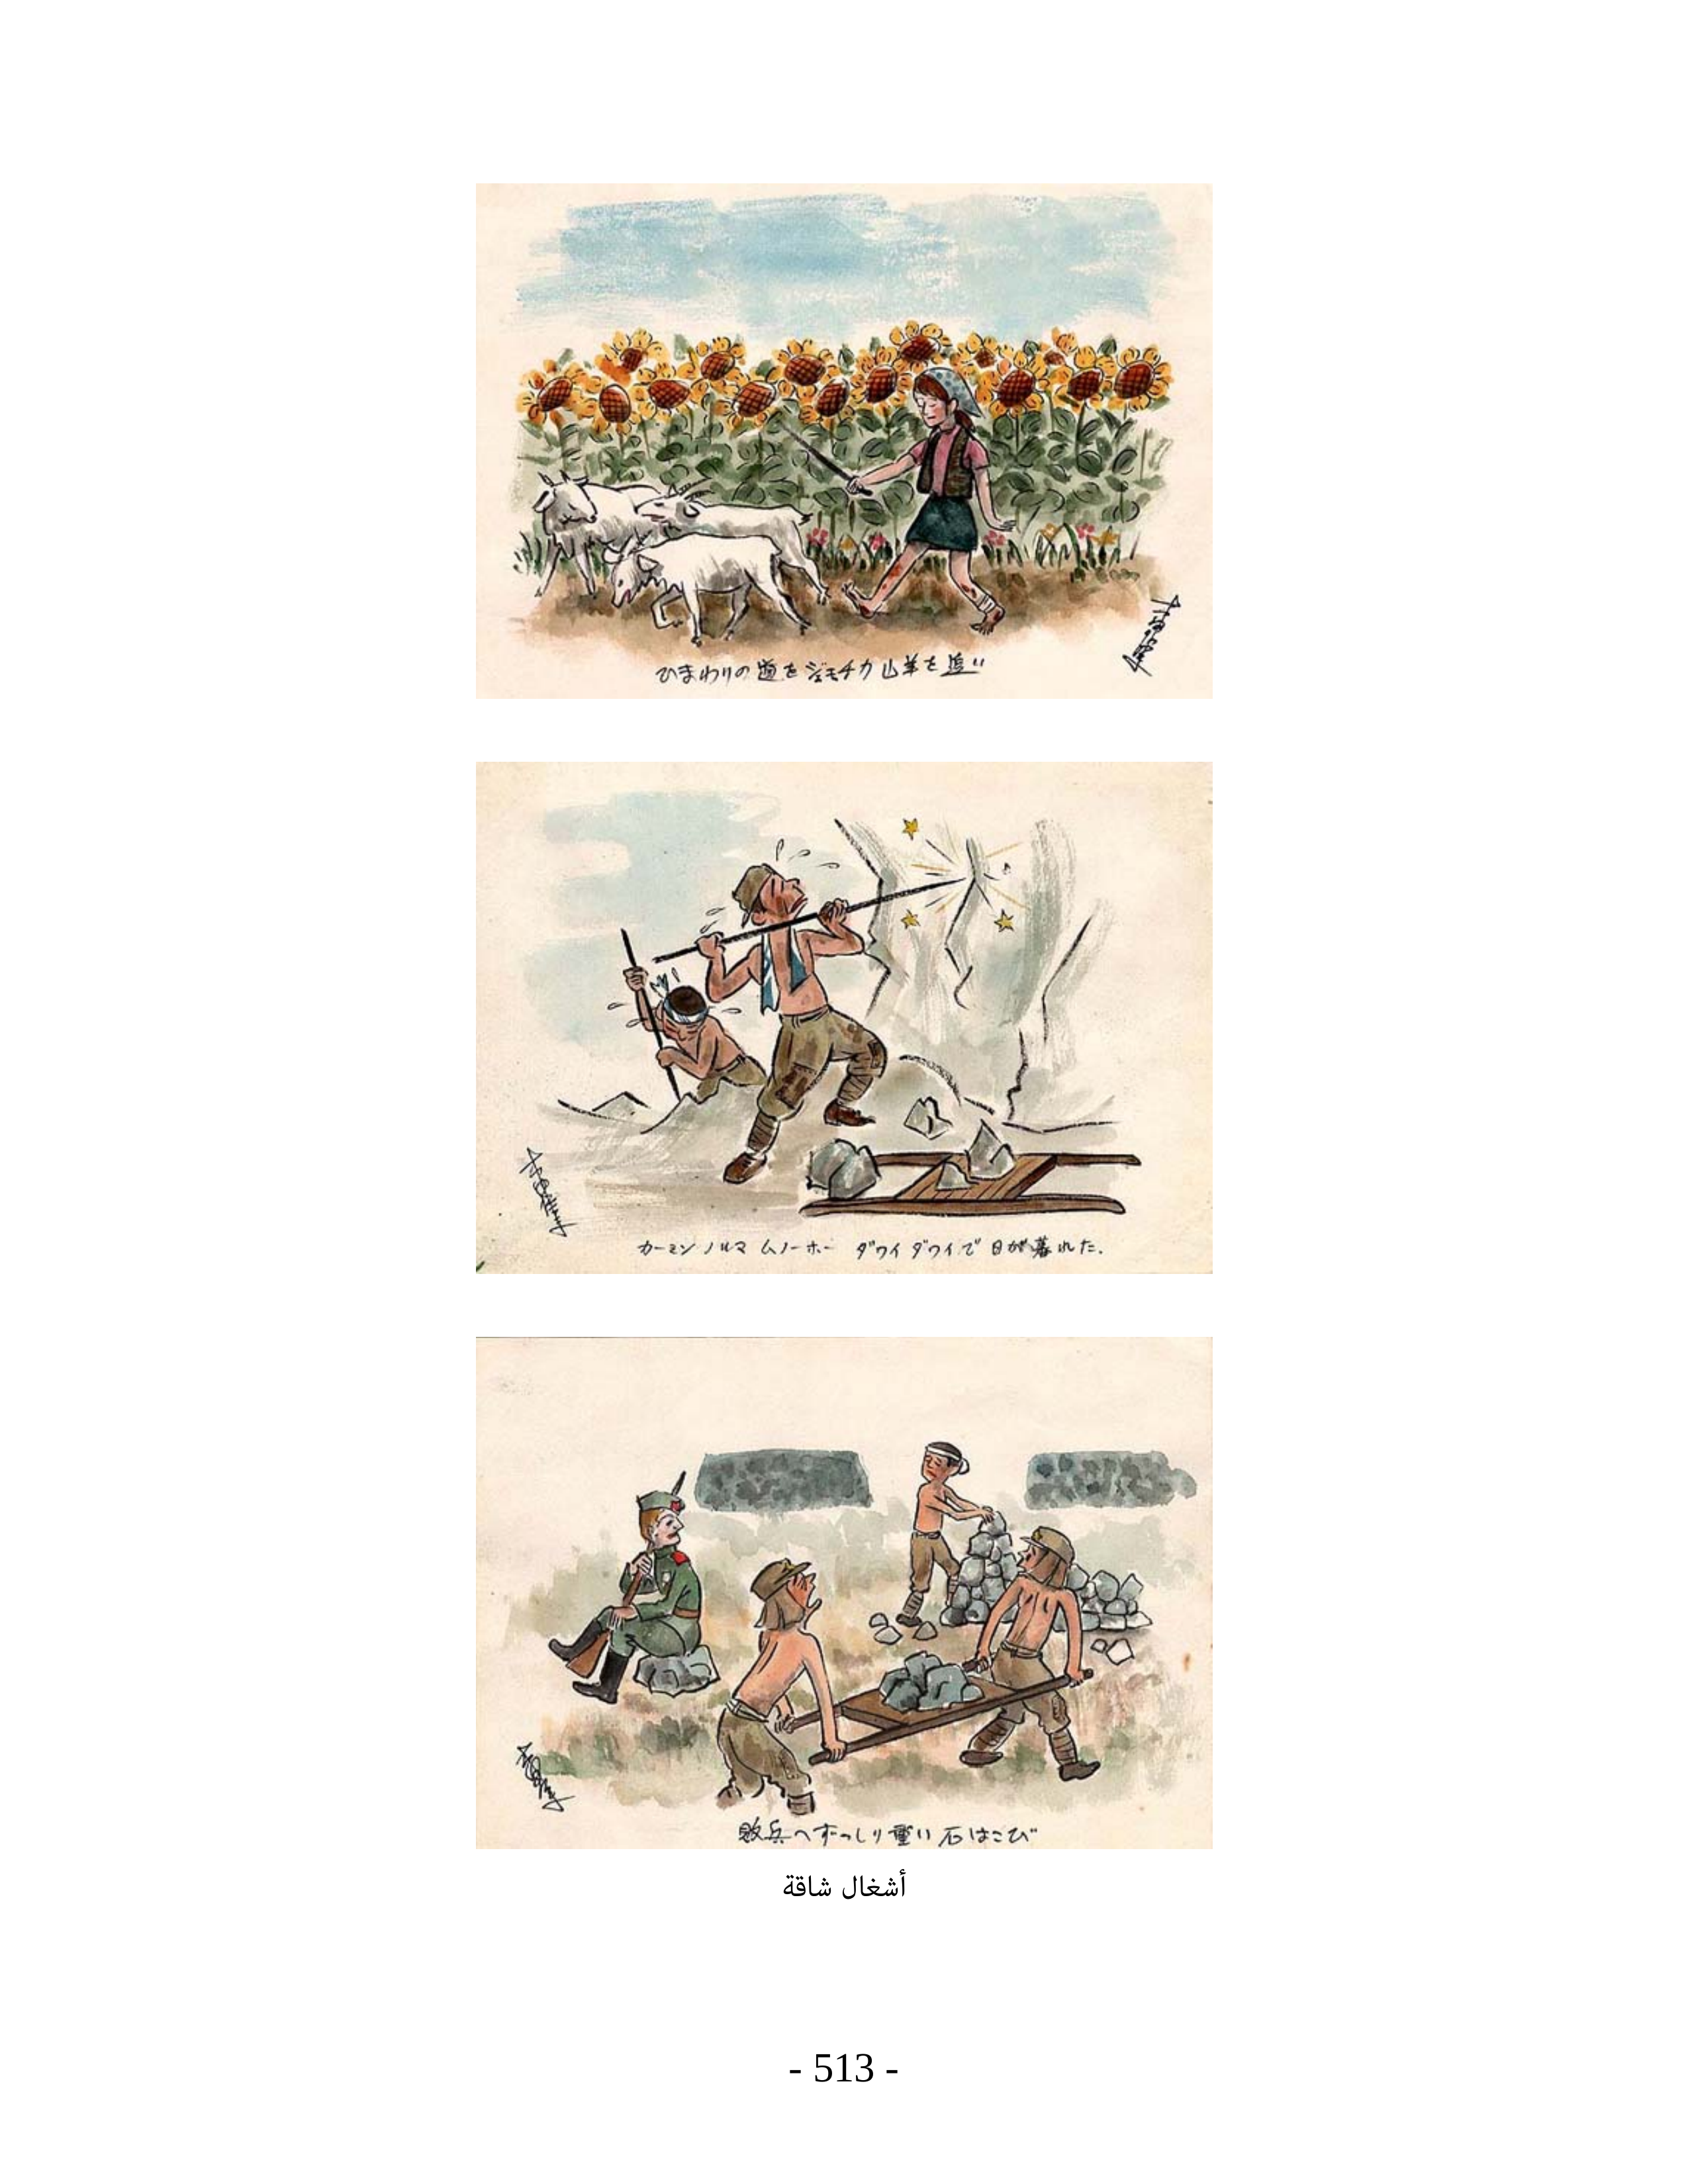 ひまわりの道をジェモチカ山羊を追い
カーミン ノルマ ムノーホー ダワイ ダワイで 日が暮れた.
敗兵へずっしり重い石はこび
أشغال شاقة
- 513 -